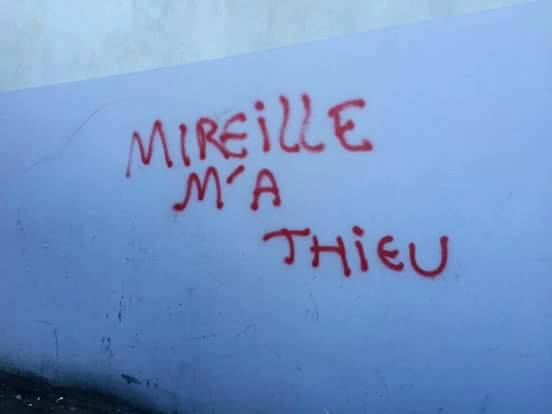 MIREiLLE
M'A
THiEU